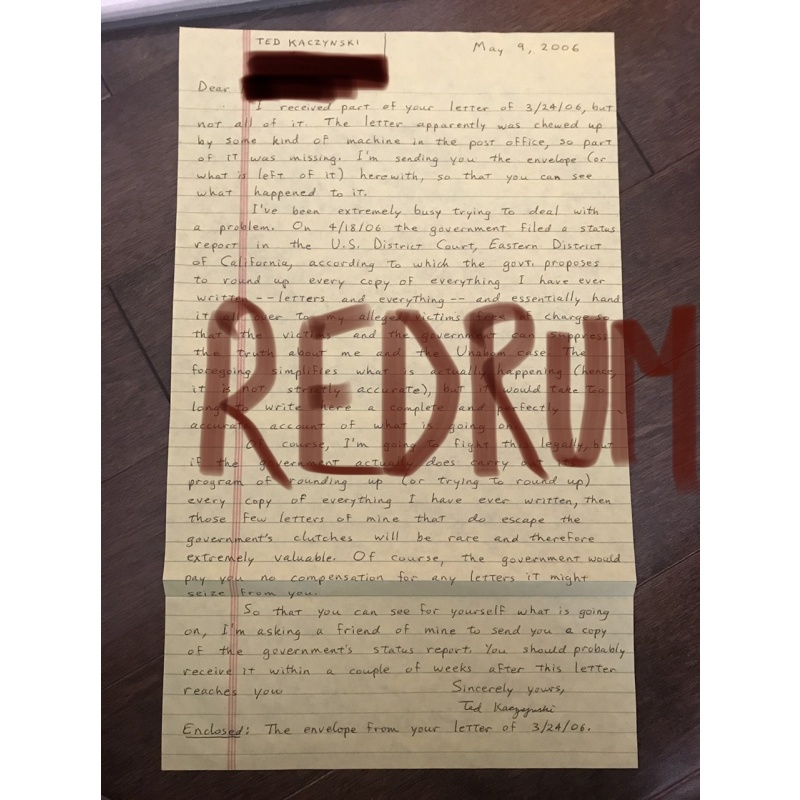 TED KACZYNSKI
May 9, 2006
Dear
I received part of your letter of 3/24/06, but
not all of it. The letter apparently was chewed up
by some kind of machine in the post office, so part
of it was missing. I'm sending you the envelope (or
what is left of it) herewith, so that you can see
what happened to it.
I've been extremely busy trying to deal with
a problem. On 4/18/06 the government filed a status
report in the U.S. District Court, Eastern District
of California, according to which the govt. proposes
to round up every copy of everything I have ever
written -- letters and everything -- and essentially hand
it all over to my alleged victims free of charge so
that the victims and the government can suppress
the truth about me and the Unabom case. The
foregoing simplifies what is actually happening (hence,
it is not strictly accurate), but it would take too
long to write here a complete and perfectly
accurate account of what is going on.
Of course, I'm going to fight this legally, but
if the government actually does carry out
program of rounding up (or trying to round up)
every copy of everything I have ever written, then
those few letters of mine that do escape the
government's clutches will be rare and therefore
extremely valuable. Of course, the government would
pay you no compensation for any letters it might
seize from you.
So that you can see for yourself what is going
on, I'm asking a friend of mine to send you a copy
of the government's status report. You should probably
receive it within a couple of weeks after this letter
reaches you
Sincerely yours,
Ted Kaczynski
Enclosed: The envelope from your letter of 3/24/06.
REDRUM